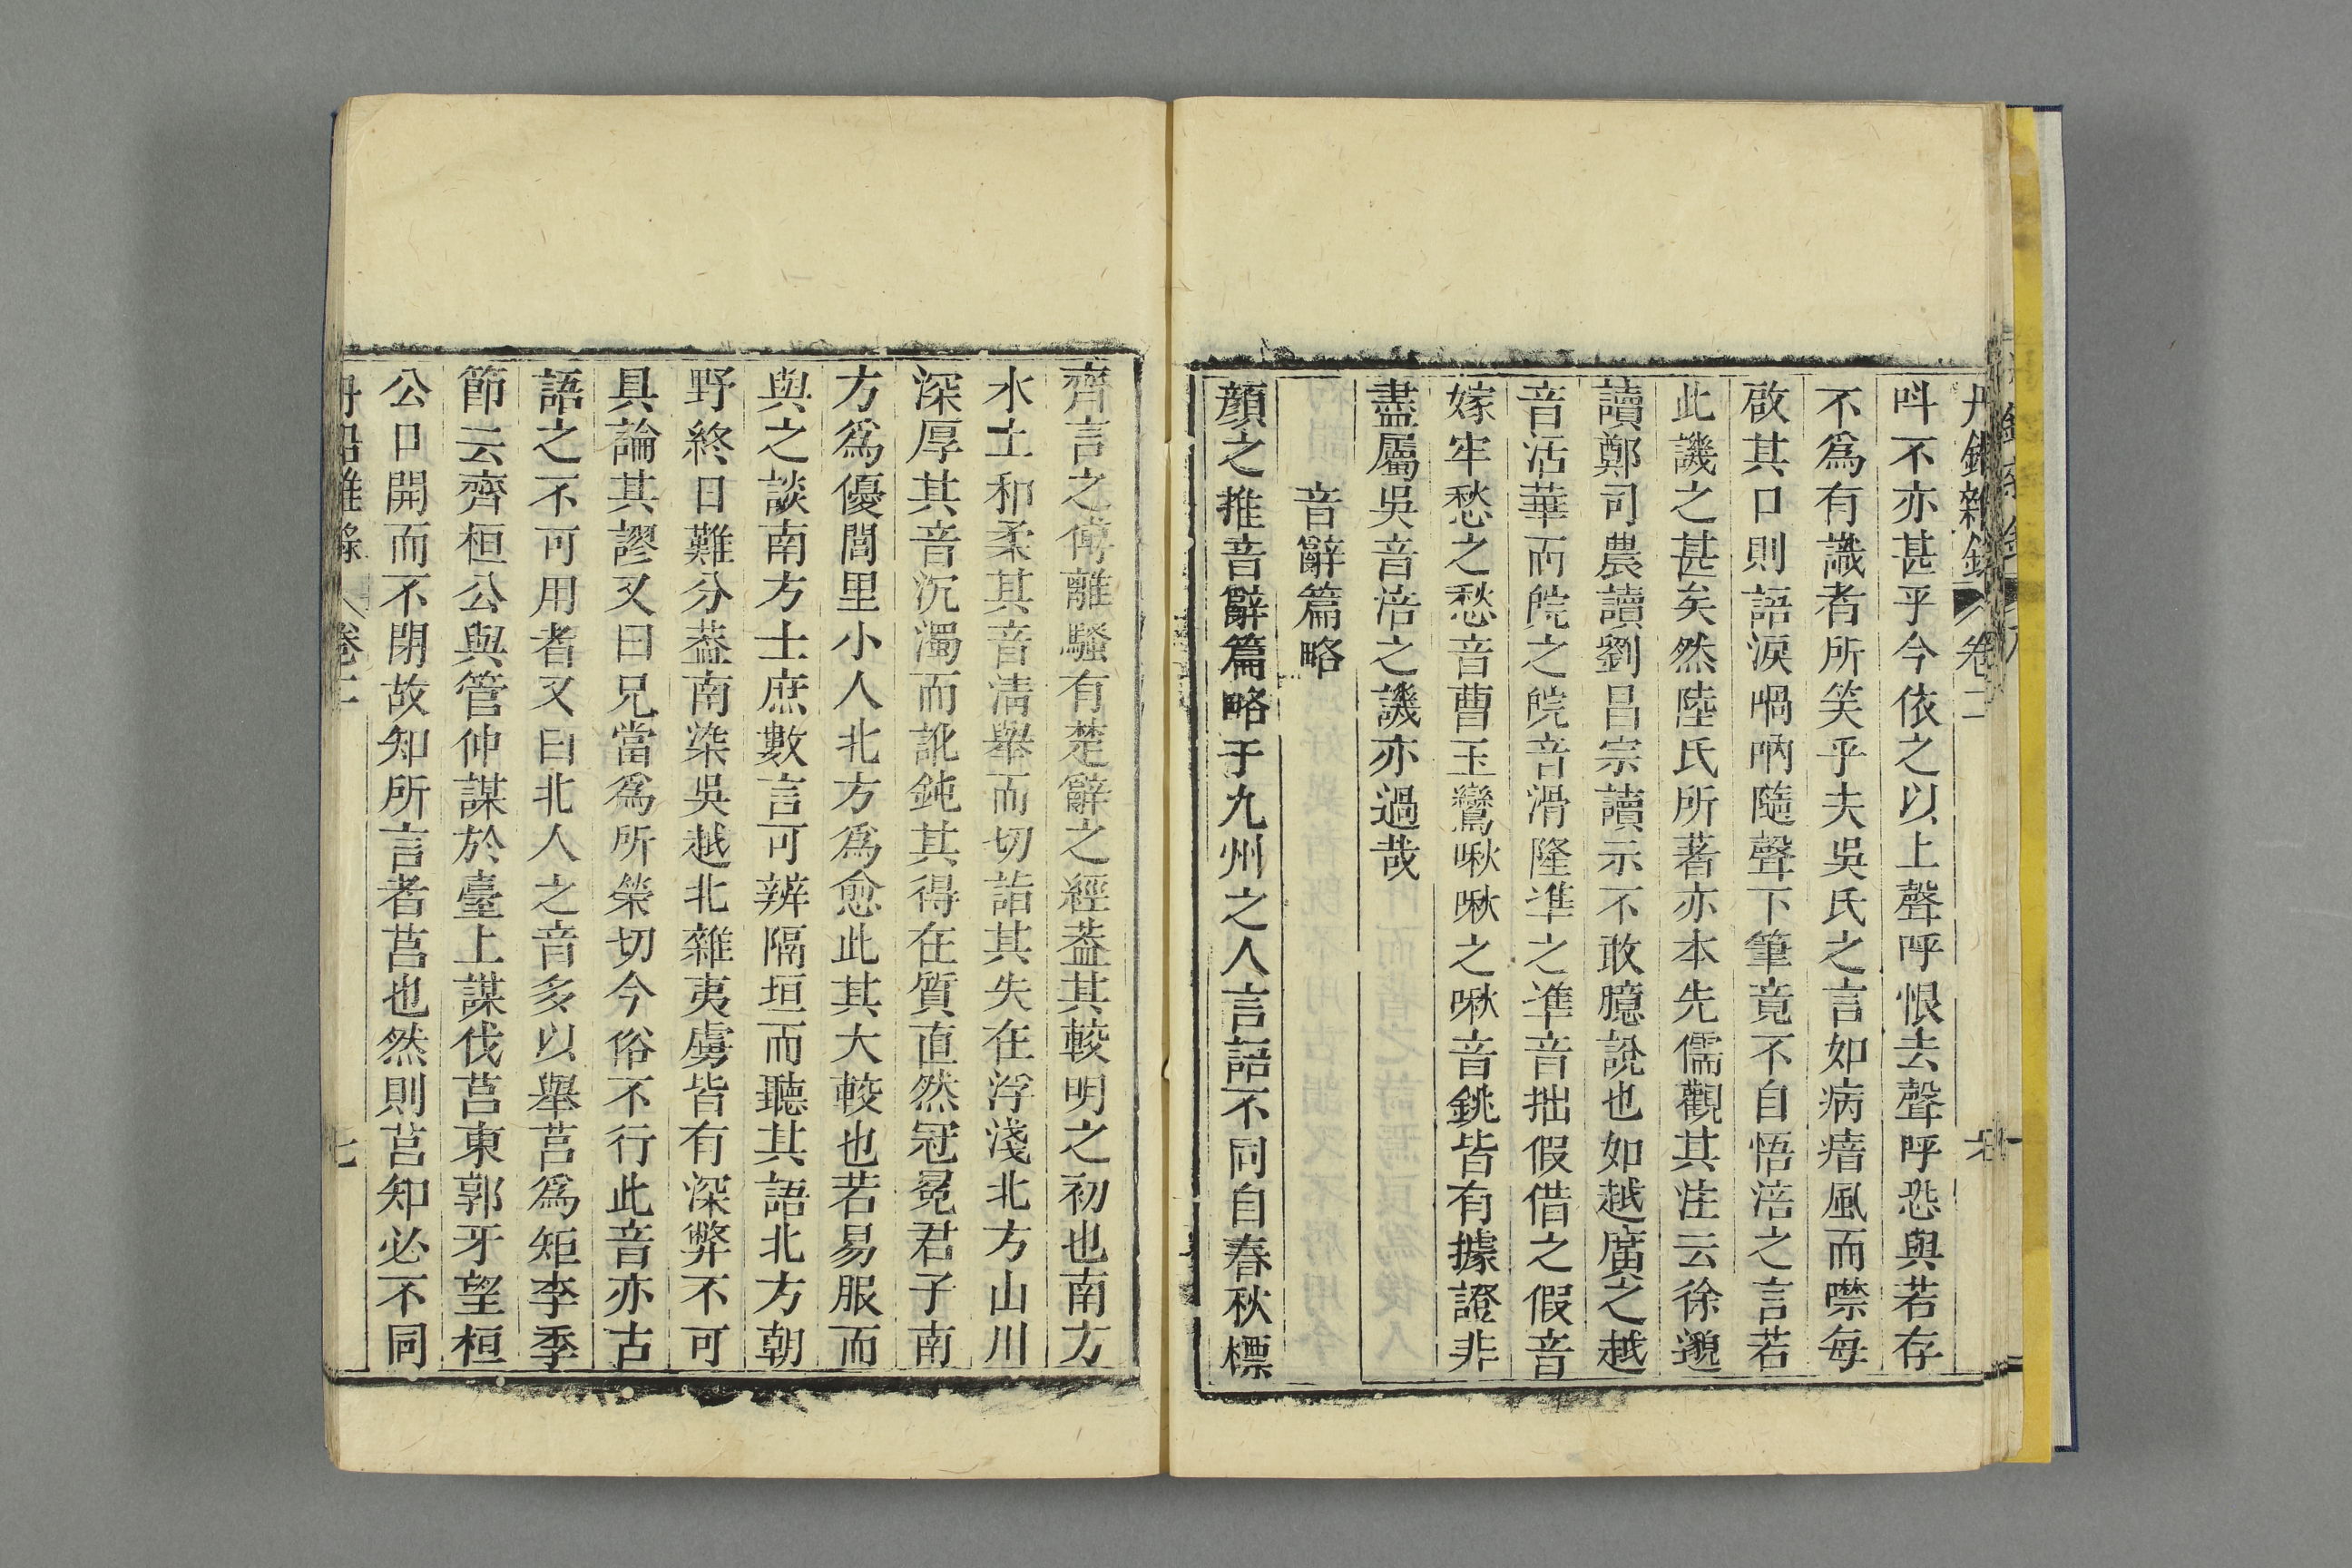 丹鉛雜錄 卷二
呌不亦甚乎今依之以上聲呼恨去聲呼恐與若存
不爲有識者所笑乎夫吳氏之言如病瘖風而噤每
啟其口則語淚喎吶隨聲下筆竟不自悟涪之言若
此譏之甚矣然陸氏所著亦本先儒觀其注云徐邈
讀鄭司農讀劉昌宗讀示不敢臆說也如越廣之越
音活華而睆之睆音滑隆準之準音拙假借之假音
嫁牢愁之愁音曹玉鸞啾啾之啾音銚皆有據證非
盡屬吳音涪之譏亦過哉
音辭篇略
顏之推音辭篇略于九州之人言語不同自春秋標
齊言之傳離騷有楚辭之經葢其較明之初也南方
水土和柔其音清舉而切詣其失在浮淺北方山川
深厚其音沉濁而訛鈍其得在質直然冠冕君子南
方爲優閭里小人北方爲愈此其大較也若易服而
與之談南方士庶數言可辨隔垣而聽其語北方朝
野終日難分葢南染吳越北雜夷虜皆有深弊不可
具論其謬又曰兄當爲所榮切今俗不行此音亦古
語之不可用者又曰北人之音多以舉莒爲矩李季
節云齊桓公與管仲謀於臺上謀伐莒東郭牙望桓
公口開而不閉故知所言者莒也然則莒知必不同
丹鉛雜錄 卷二 七